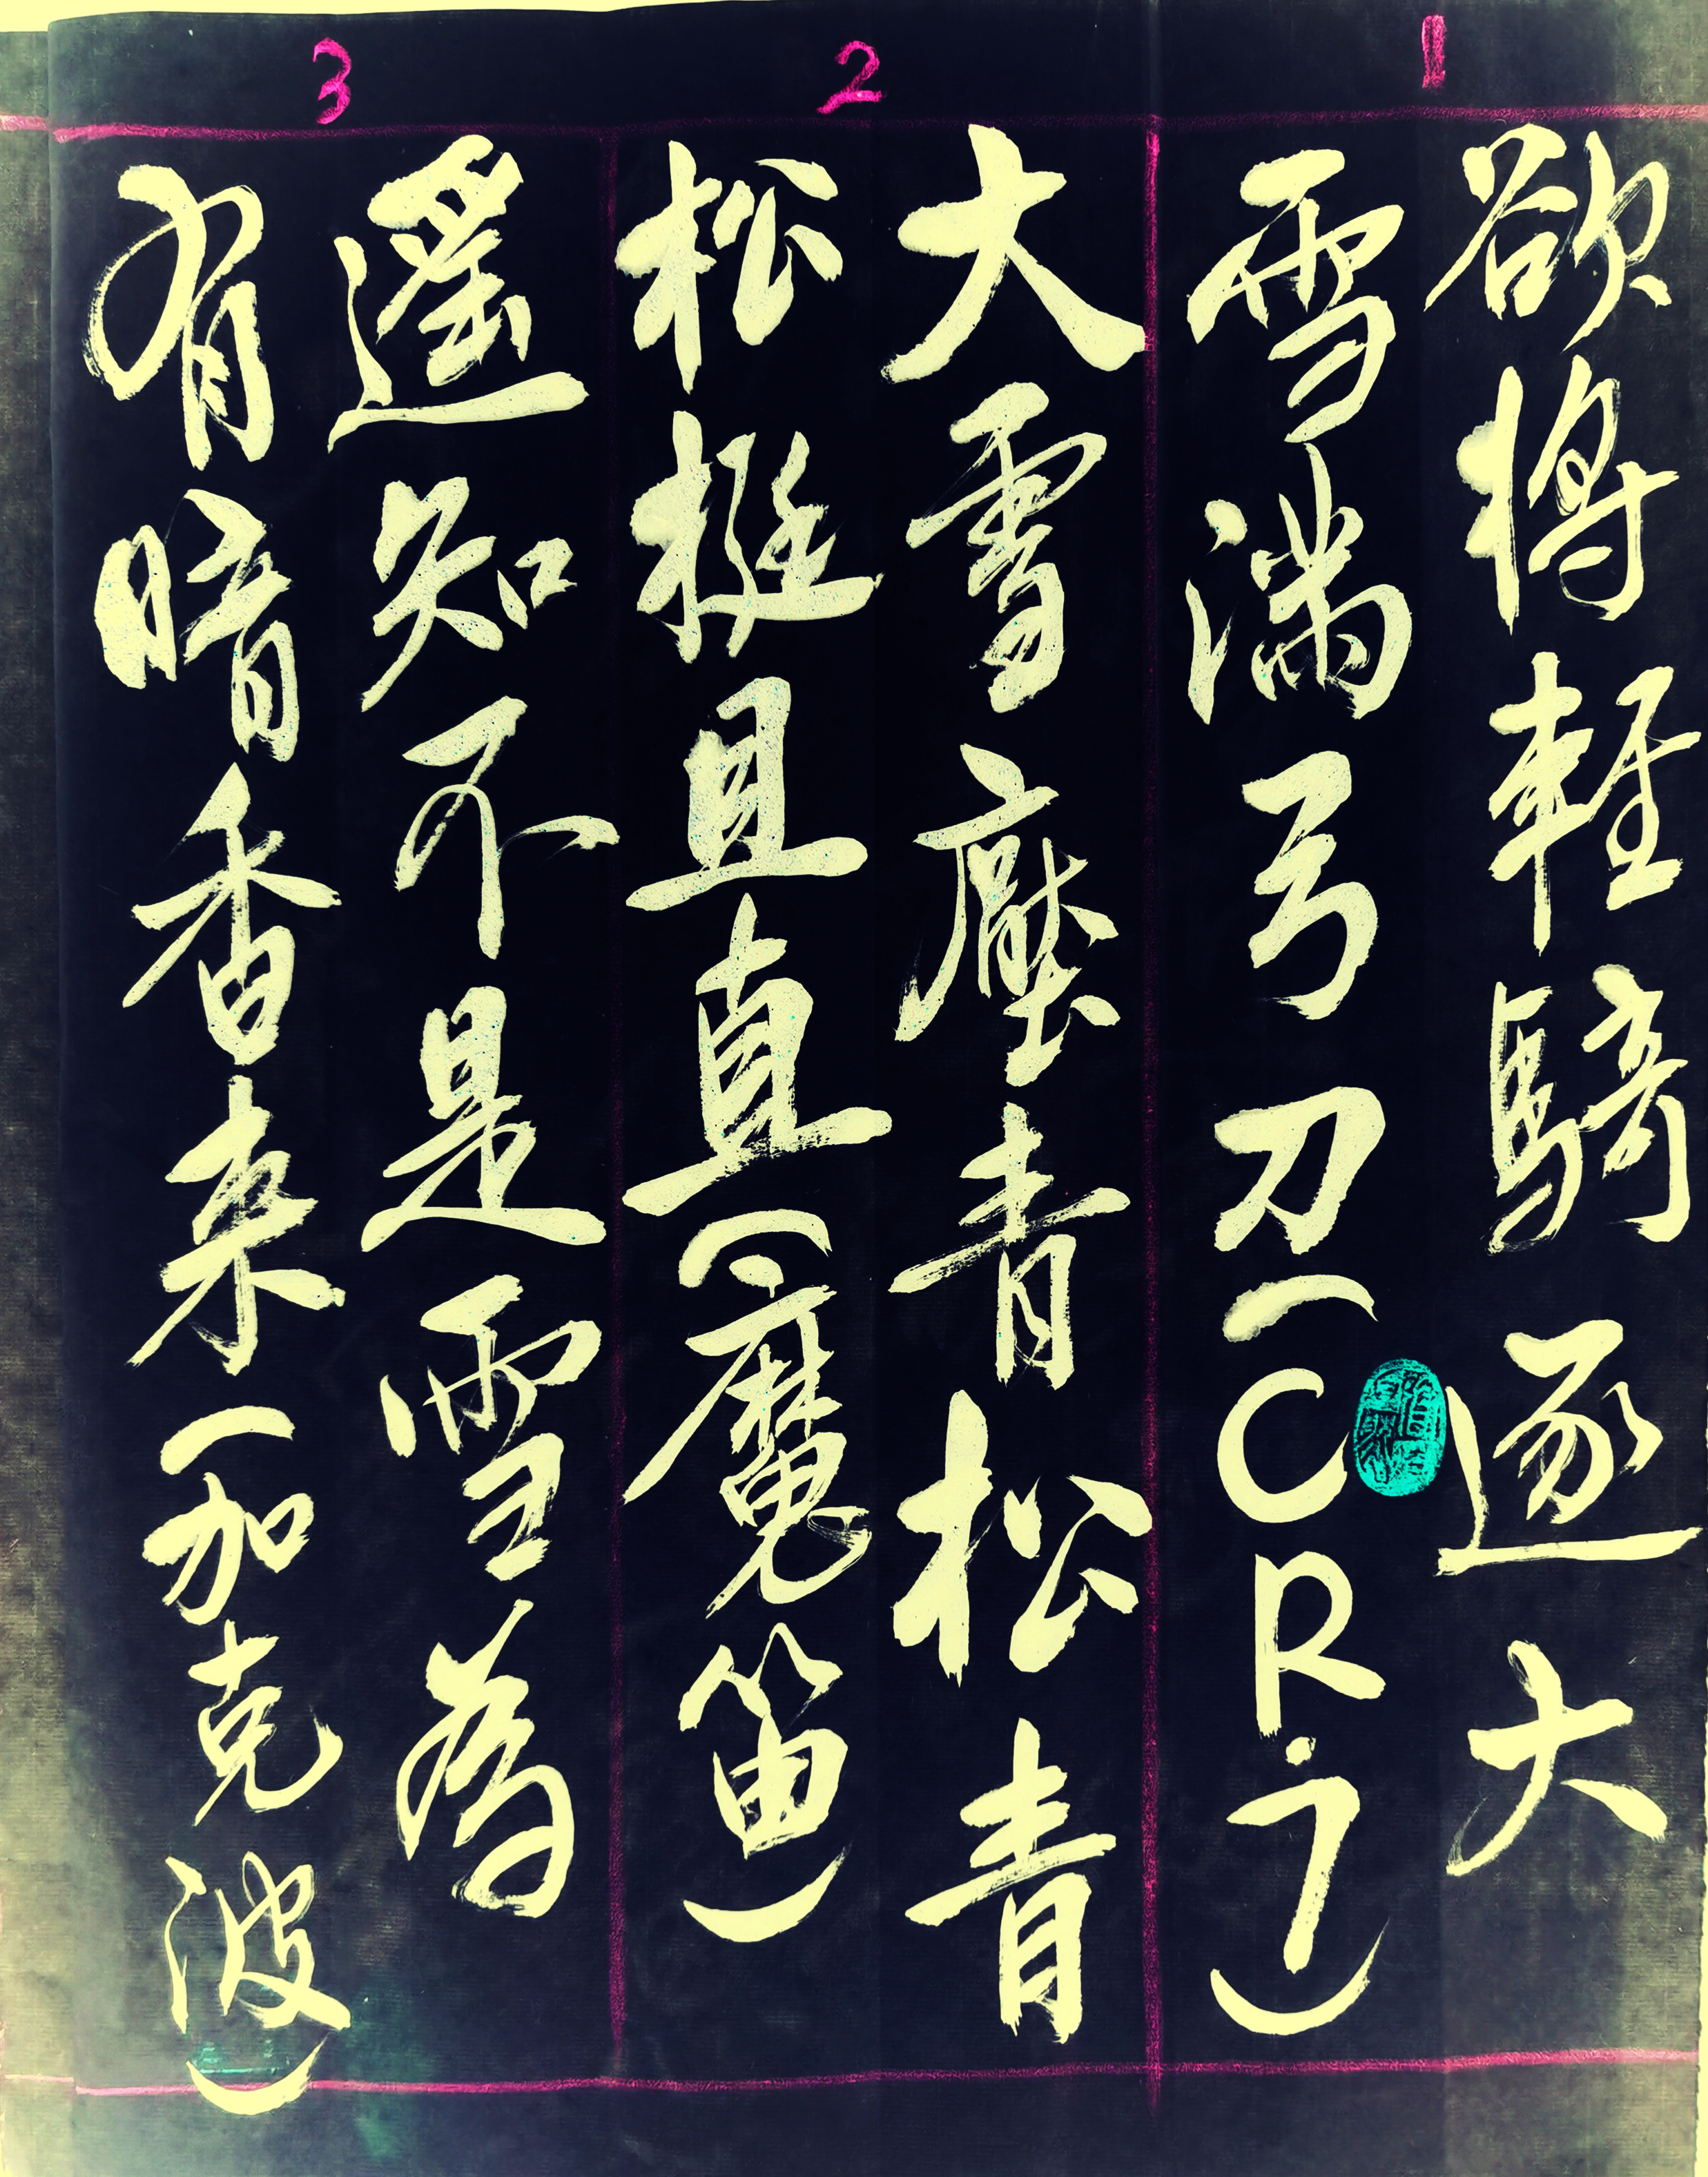 1
欲將輕騎逐大
雪滿弓刀(CR·7)
2
大雪壓青松青
松挺且直(魔笛)
3
遥知不是雪為
有暗香来(加克波)